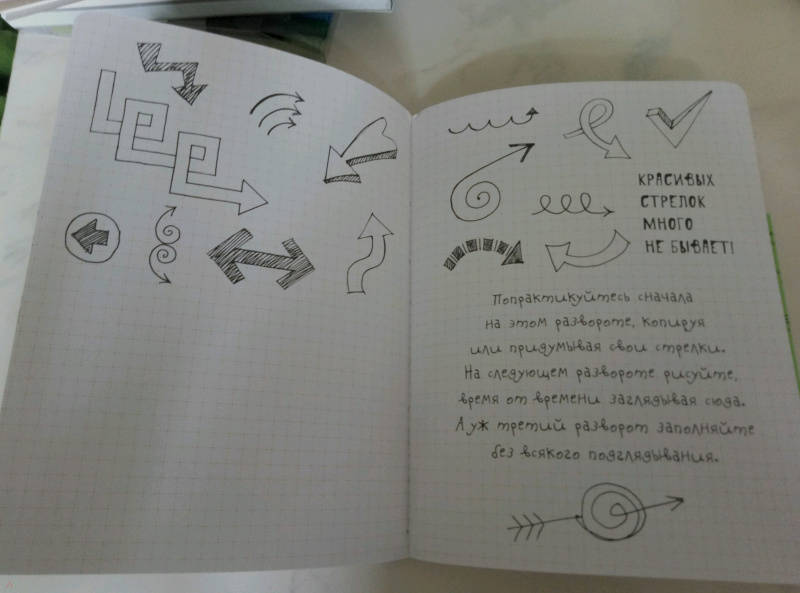 КРАСИВЫХ
СТРЕЛОК
МНОГО
НЕ БЫВАЕТ!
Попрактикуйтесь сначала
на этом развороте, копируя
или придумывая свои стрелки.
На следующем развороте рисуйте,
время от времени заглядывая сюда.
А уж третий разворот заполняйте
без всякого подглядывания.